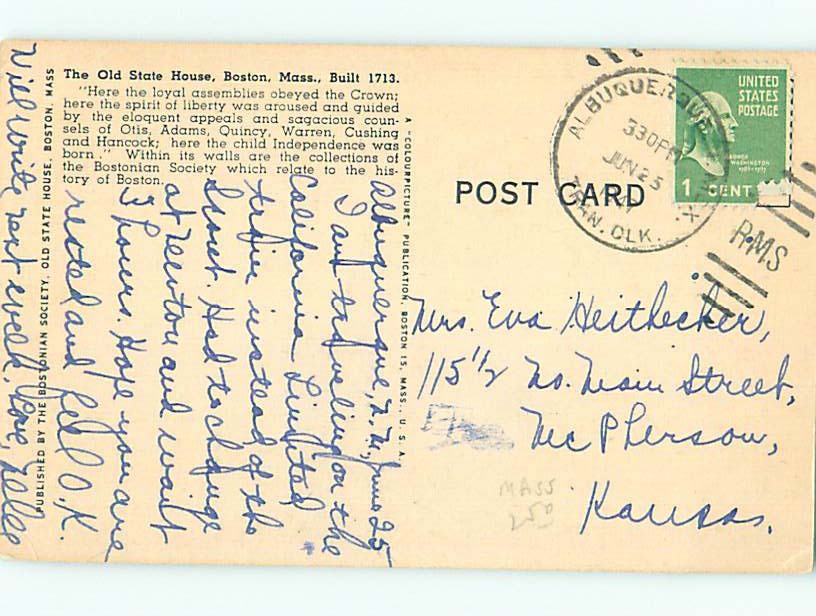 The Old State House, Boston, Mass., Built 1713.
"Here the loyal assemblies obeyed the Crown;
here the spirit of liberty was aroused and guided
by the eloquent appeals and sagacious coun-
sels of Otis, Adams, Quincy, Warren, Cushing
and Hancock; here the child Independence was
born." Within its walls are the collections of
the Bostonian Society which relate to the his-
tory of Boston.
PUBLISHED BY THE BOSTONIAN SOCIETY, OLD STATE HOUSE, BOSTON, MASS
A "COLOURPICTURE" PUBLICATION, BOSTON 15, MASS., U. S. A.
Albuquerque, N.M., June 25
I am traveling on the
California Limited
train instead of the
Scout. Had to change
at Newton and wait
3 hours. Hope you are
rested and feel O.K.
Will write next week. Love, Nelle
POST CARD
ALBUQUERQUE
330PM
JUN 25
TRAN. CLK.
RMS
UNITED
STATES
POSTAGE
GEORGE
WASHINGTON
1 CENT
Mrs. Eva Heithecker,
115 1/2 No. Main Street,
McPherson,
Kansas.
MASS
250